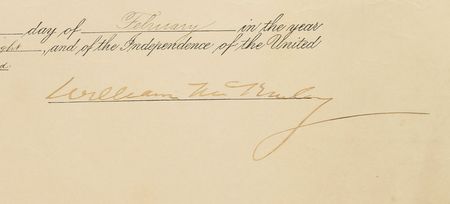 day of February in the year
ght, and of the Independence of the United
d.
William McKinley